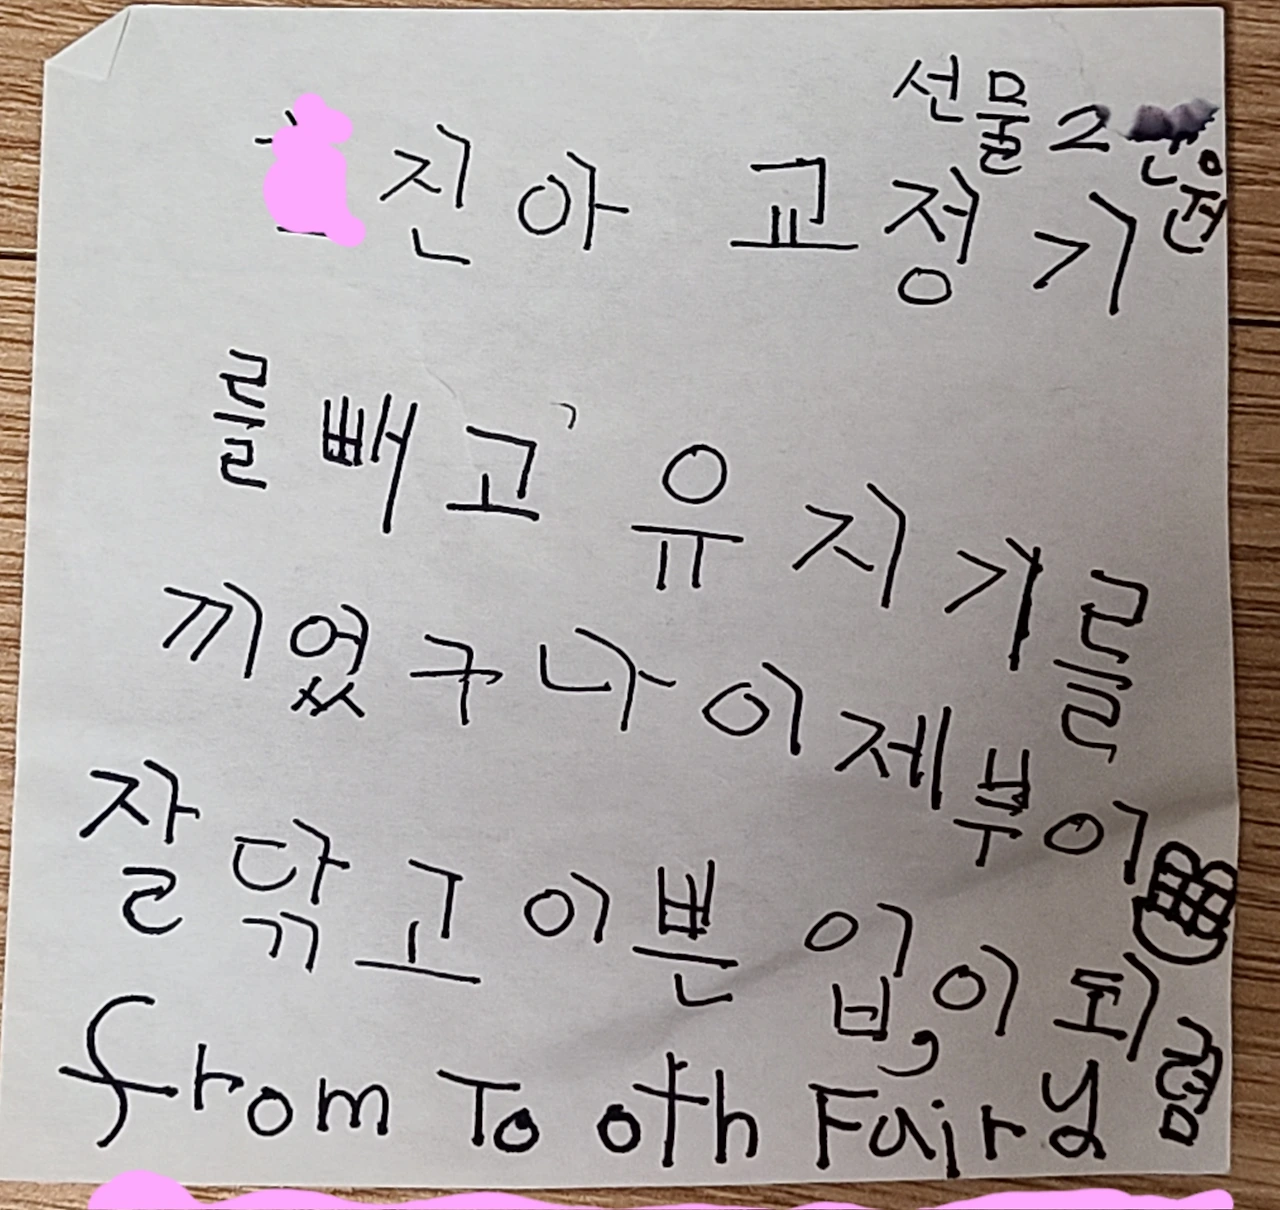 선물 2
진아 교정기
를 빼고 유지기를
끼었구나 이제부이
잘 닦고 이쁜 입,이 되렴
From Tooth Fairy